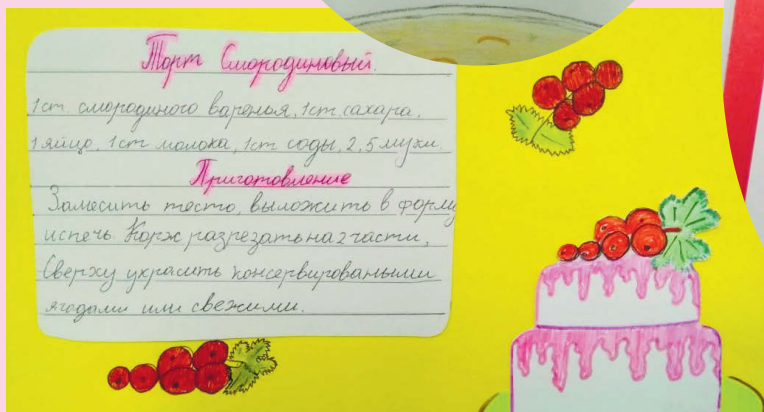 Торт Смородиновый.
1ст смородиного вареня, 1ст. сахара,
1 яйцо, 1ст молока, 1ст соды, 2,5 муки.
Приготовление
Замесить тесто, выложить в форму
испечь. Корж разрезать на 2 части,
Сверху украсить консервироваными
ягодами или свежими.